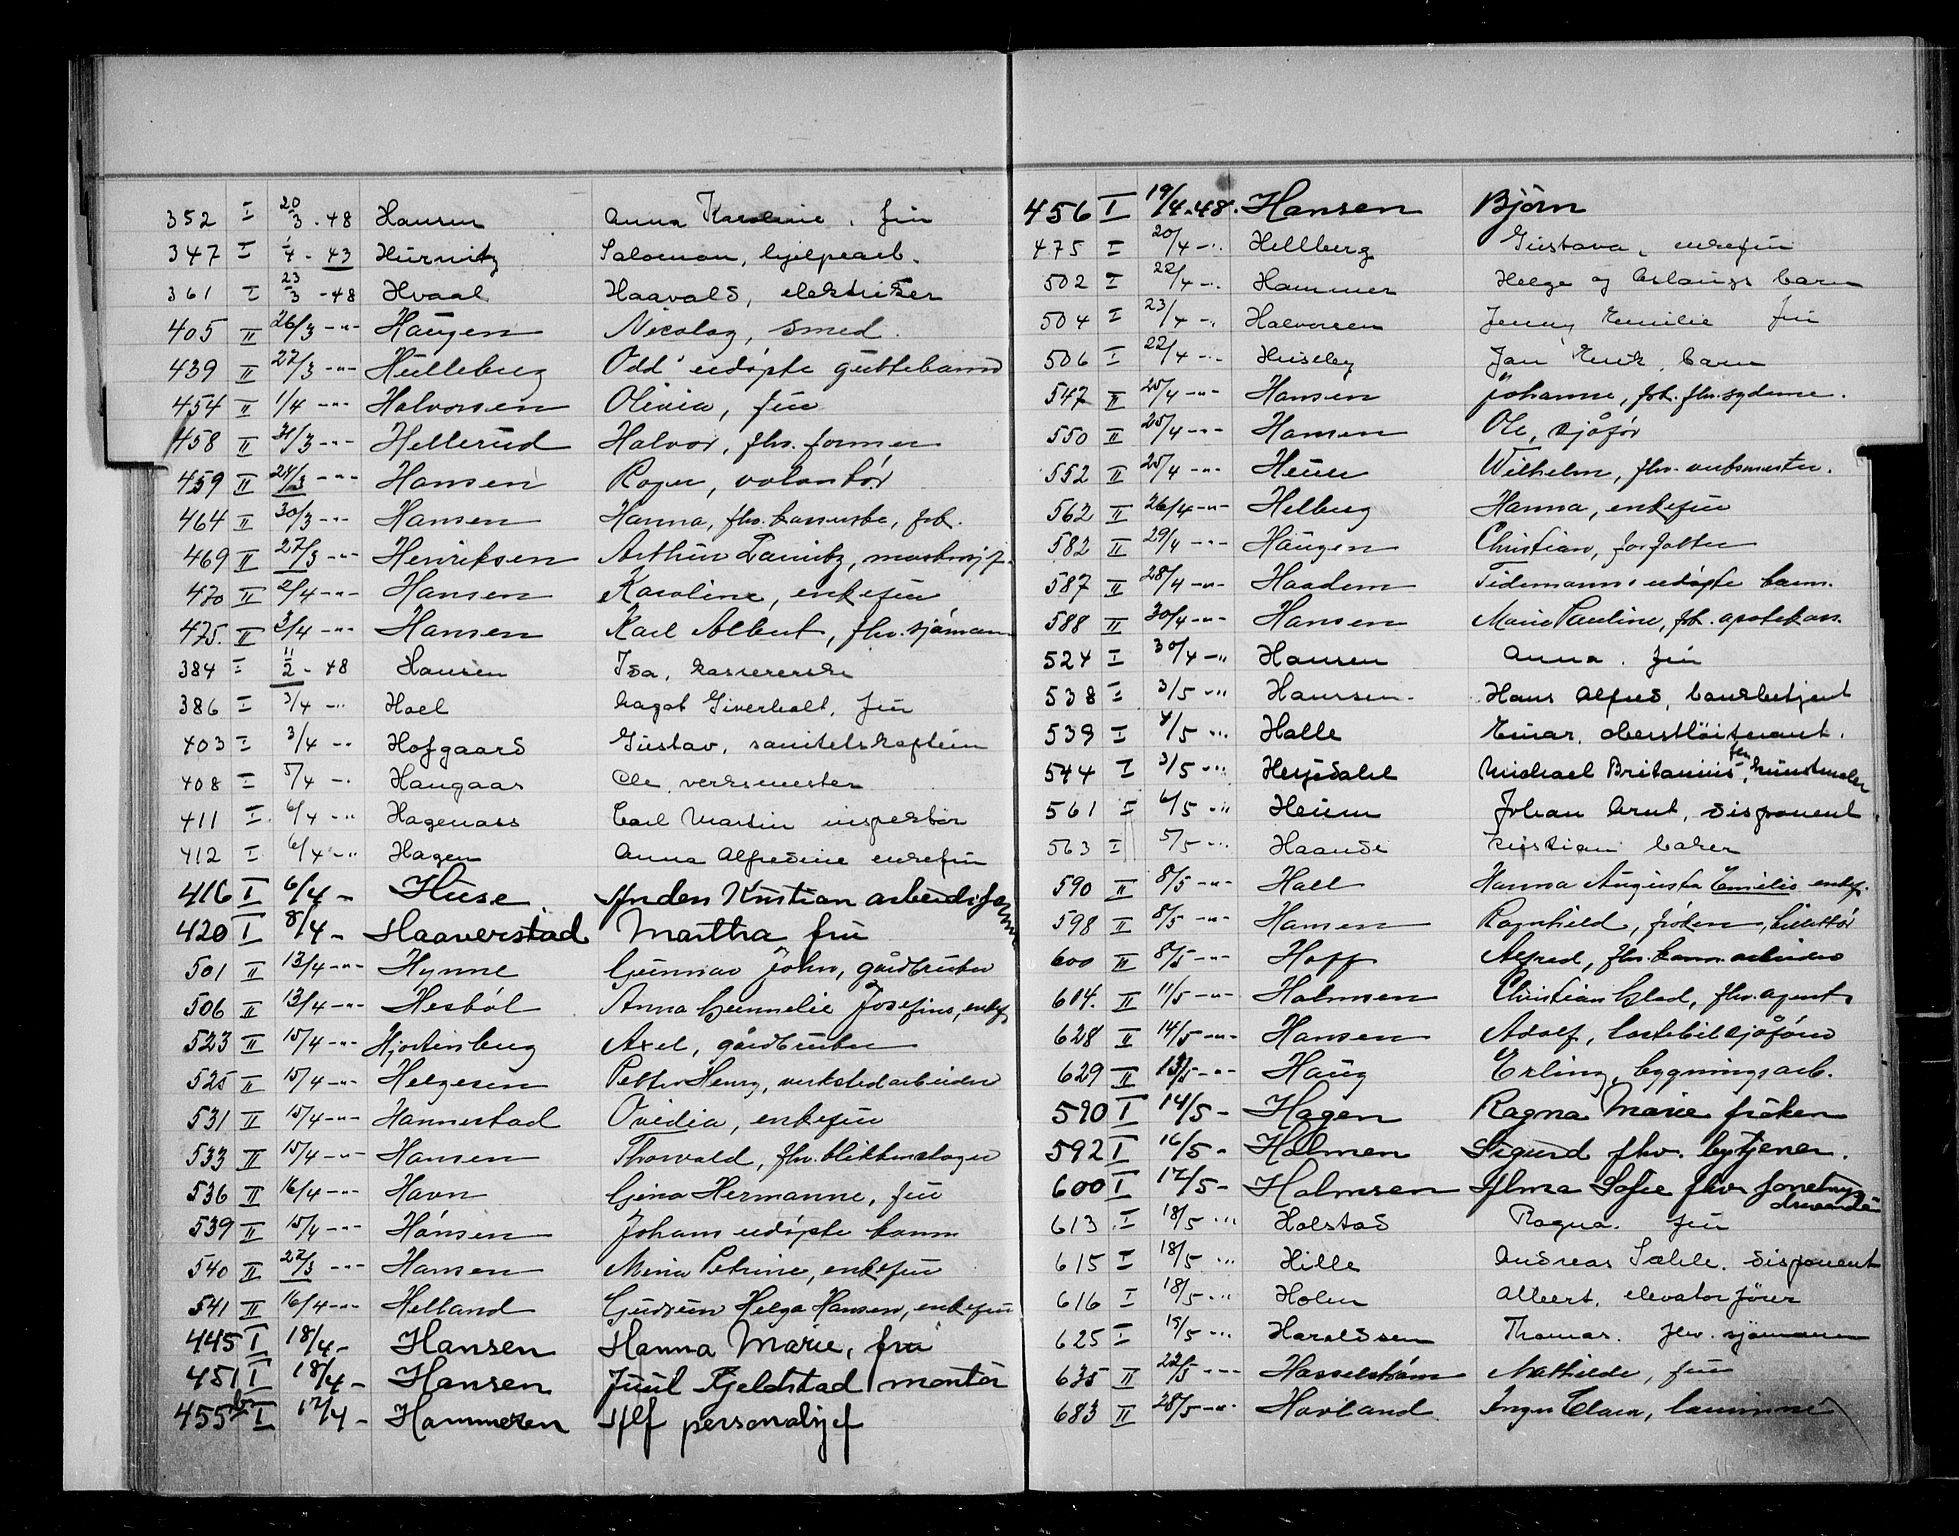 352 I 20/3 - 48 Hansen Anna Karoline, fru
347 I 1/4 - 43 Hurwitz Salomon, hjelpearb.
361 I 23/3 - 48 Hvaal Haavald, elektriker
405 II 26/3 -"- Haugen Nicolay, smed
439 II 27/3 -"- Hulleberg Odd udøpte guttebarn
454 II 1/4 -"- Halvorsen Olivia, fru
458 II 31/3 -"- Hellerud Halvor, fhv. former
459 II 24/3 -"- Hansen Roger, volontør
464 II 30/3 -"- Hansen Hanna, fhv. , frk.
469 II 27/3 -"- Henriksen Arthur
470 II 2/4 -"- Hansen Karoline, enkefru
475. II 3/4 -"- Hansen Karl Albert, fhv. sjømann
384 I 11/2 - 48 Hansen Isa, kassererske
386 I 3/4 -" Hoel Aagot , fru
403 I 3/4 -" Hofgaard Gustav, sanitetskaptein
408 I 5/4 -" Haugaas Ole, verksmester
411 I 6/4 -" Hagenass Carl Martin inspektør
412 I 6/4 -" Hagen Anna Alfredine enkefru
416 I 6/4 - Huse Anden Kristian arbeidsformann
420 I 8/4 - Haaverstad Martha fru
501 II 13/4 -"- Hynne Gunnar John, gårdbruker
506 II 13/4 -"- Hesbøl Anna Gunnelie Josefine, enkef.
523 II 15/4 -"- Hjortinsberg Axel, gårdbruker
525 II 15/4 -"- Helgesen Petter Henry, verkstedarbeider
531 II 15/4 -"- Hannestad Ovidia, enkefru
533 II 15/4 -"- Hansen Thorvald, fhv. blikkenslager
536 II 16/4 -"- Havn Gina Hermanne, fru
539 II 15/4 -"- Hansen Johans udøpte barn
540 II 27/3 -"- Hansen Mina Petrine, enkefru
541 II 16/4 -"- Helland Gudrun Helga Hansen, enkefru
445 I 18/4 - Hansen Hanna Marie, fru
451 I 18/4 - Hansen Juul Kjeldstad montør
455 b I 17/4 - Hammeren Alf personalsjef
456 I 19/4 - 48. Hansen Björn
475 I 20/4 -" Hellberg Gustava, enkefru
502 I 22/4 -" Hammer Helge og Aslaugs barn
504 I 23/4 -" Halvorsen Jenny Emilie fru
506 I 22/4 -" Huseby Jan Erik, barn
547 II 25/4 -"- Hansen Johanne, frk. fhv. syderske.
550 II 25/4 -"- Hansen Ole, sjåfør
552 II 25/4 -"- Heuer Wilhelm, fhv. verksmester.
562 II 26/4 -"- Helberg Hanna, enkefru
582 II 29/4 -"- Haugen Christian, forfatter
587 II 28/4 -"- Haadem Tidemanns udøpte barn.
588 II 30/4 -"- Hansen Marie Pauline, frk. apotekass.
524 I 30/4 -" Hansen Anna. fru
538 I 3/5 -"" Hansen. Hans Alfred, bankbetjent
539 I 4/5 -"" Halle Einar, oberstløitnant.
544 I 3/5 -"" Herjedahl Michael Britanius fhv., kunstmaler
561 I 6/5 -"" Heum Johan Arnt, disponent
563 I 5/5 -"" Haande Kristian baker
590 II 8/5 -"- Hall Hanna Augusta Emilie enkef.
598 II 8/5 -"- Hansen Ragnhild, frøken, billettør
600 II 8/5 -"- Hoff Alfred, fhv. komm. arbeider
604. II 11/5 -"- Halmsen Christian Glad, fhv. agent
628 II 14/5 -"- Hansen Adolf, lastebilsjåfør
629 II 13/5 -"- Haug Erling, bygningsarb.
590 I 14/5 - Hagen Ragna Marie frøken
592 I 16/5 - Holmen Sigurd fhv. bytjener.
600 I 17/5 - Halmsen Alma Sofie fhv
613 I 18/5 -"" Holstad Ragna. fru
615 I 18/5 -"" Hille Andreas Sakle. disponent
616 I 18/5 -"" Holm Albert, elevatorfører
625 I 19/5 -"" Haraldssen Thomas. fhv. sjømann
635 II 22/5 -"- Hasselstrøm Mathilde, fru
683 II 28/5 -"- Havland Inger Clara,